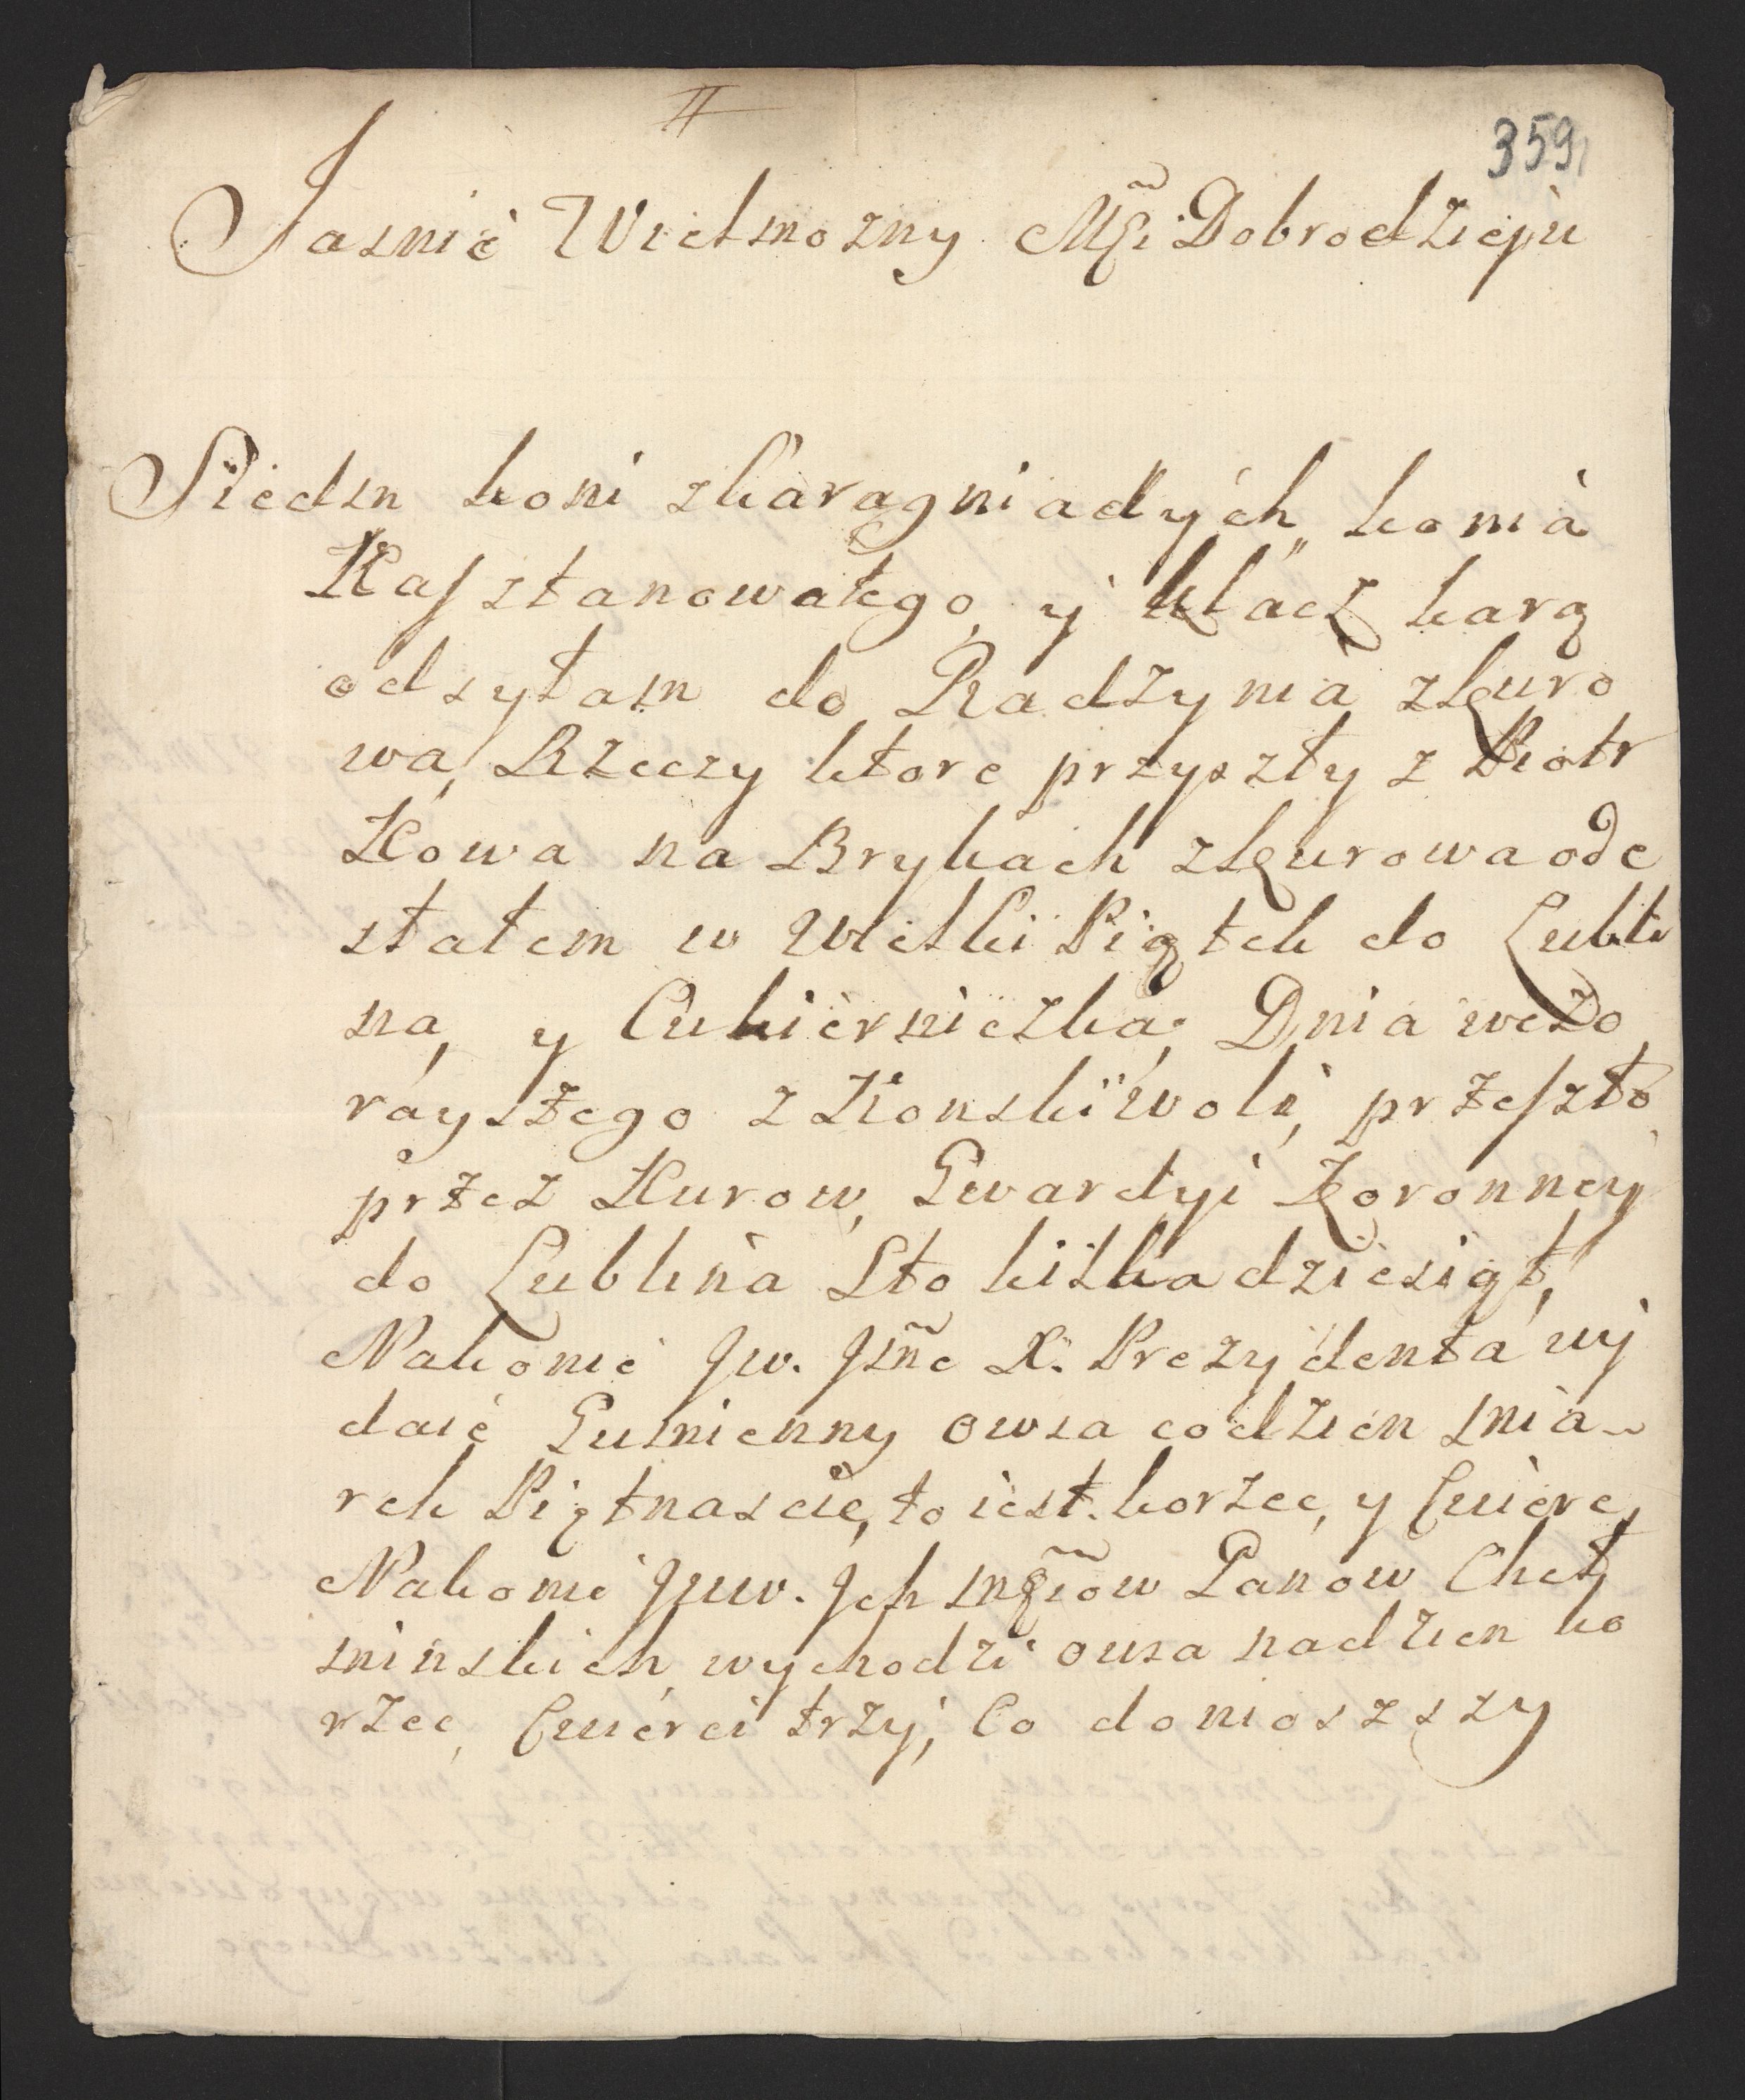 II
359
Jasnie Wielmozny Mći Dobrodzieju
Siedm koni skarogniadych, konia
Kasztanowatego, y klacz karą
odsyłam do Radzynia z Kuro
wa, Rzeczy ktore przyszły z Piotr
Kowa na Brykach z Kurowa ode
słałem w Wielki Piątek do Lubli
na, y Cukierniczka, Dnia wczo
rayszego z Konski woli, przeszło
przez Kurow, Gwardyi Koronney
do Lublina Sto kilkadziesiąt,
Nakonie Jw. Jmc X. Prezydenta wy
daie Gumienny owsa codzien mia-
rek Piętnascie, to iest. korzec, y Cwierc,
Nakonie Jww. Ich mciow Panow Cheł
minskich wychodzi owsa nadzien ko
rzec, Cwierci trzy, Co doniosszszy